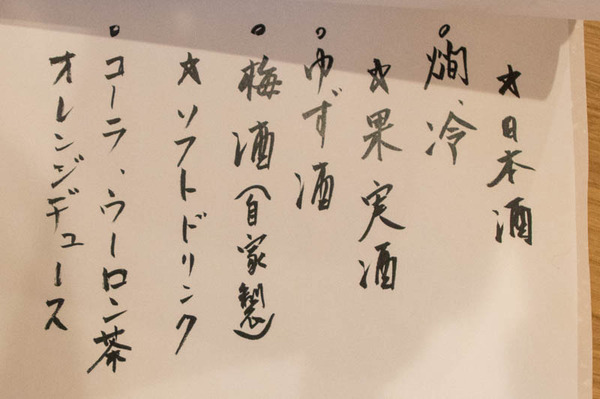 ☆日本酒
○燗、冷
☆果実酒
○ゆず酒
○梅酒(自家製)
☆ソフトドリンク
○コーラ、ウーロン茶
オレンジデュース